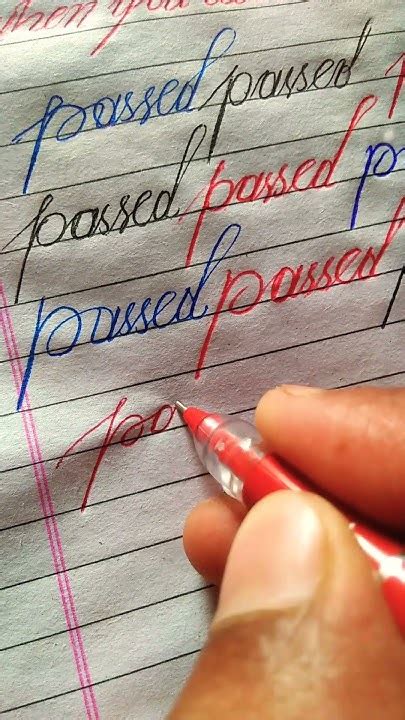 when you
passed passed
passed passed p
passed passed
pa